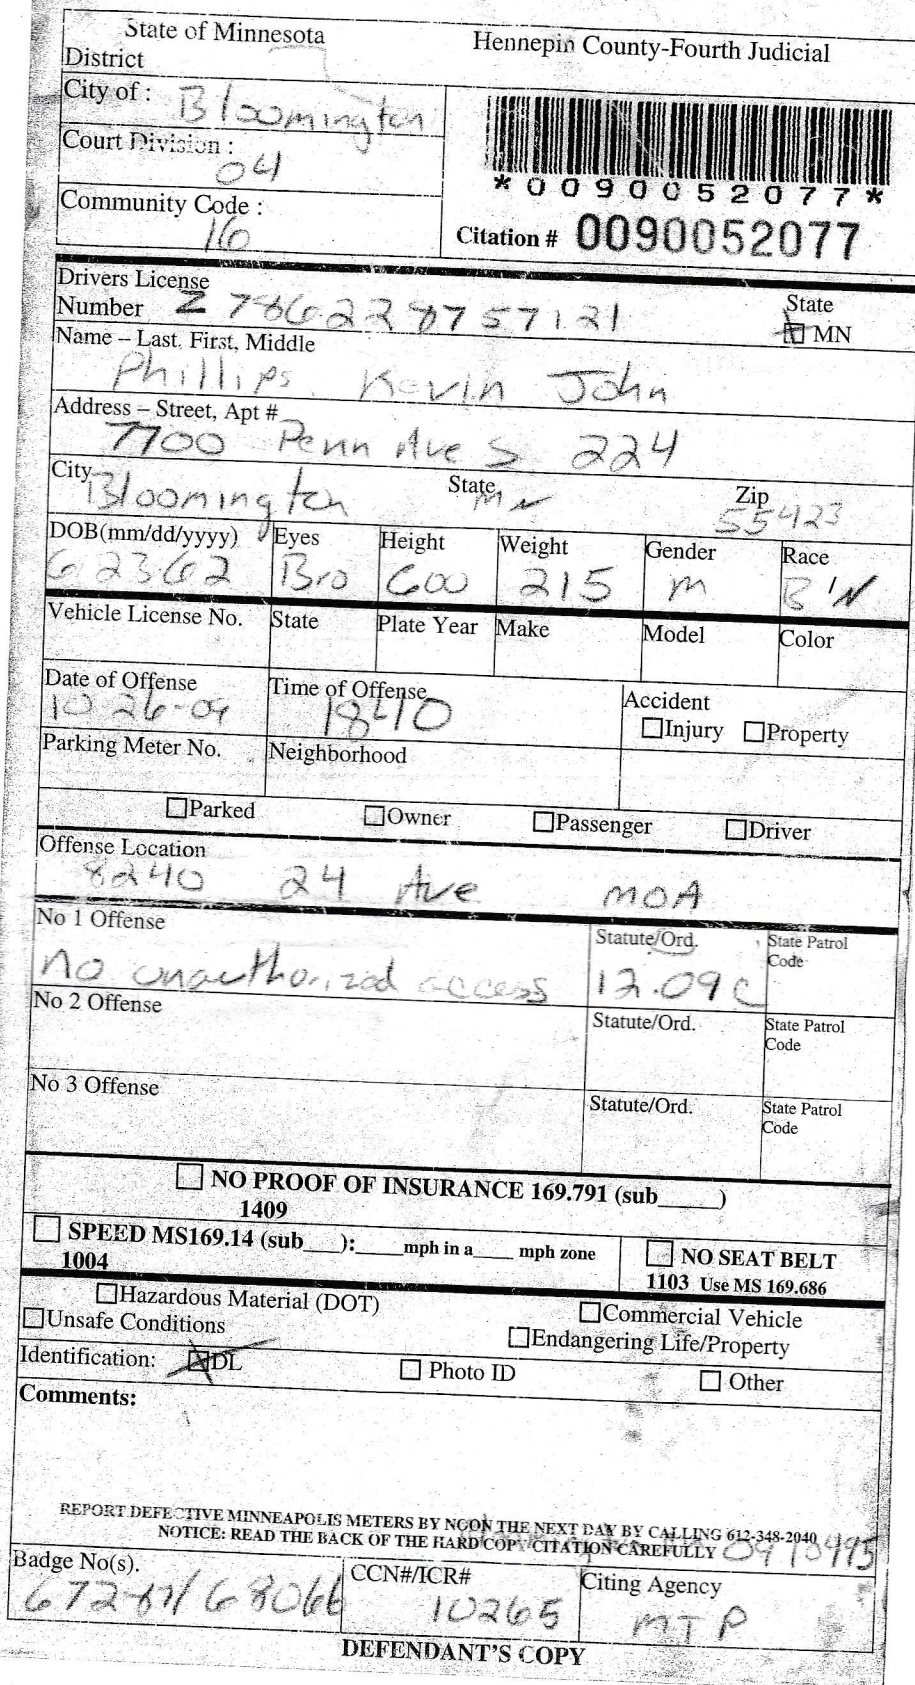 State of Minnesota Hennepin County-Fourth Judicial
District
City of : Bloomington
Court Division : 04
*0090052077*
Community Code : 16
Citation # 0090052077
Drivers License State
Number Z 786228757121 MN
Name – Last, First, Middle
Phillips Kevin John
Address – Street, Apt #
7700 Penn Ave S 224
City State Zip
Bloomington MN 55423
DOB(mm/dd/yyyy) Eyes Height Weight Gender Race
6 23 62 Bro 600 215 M B
Vehicle License No. State Plate Year Make Model Color
Date of Offense Time of Offense Accident
10-26-09 1840 Injury Property
Parking Meter No. Neighborhood
Parked Owner Passenger Driver
Offense Location
8240 24 Ave MOA
No 1 Offense Statute/Ord. State Patrol Code
no unauthorized access 12.09 C
No 2 Offense Statute/Ord. State Patrol Code
No 3 Offense Statute/Ord. State Patrol Code
NO PROOF OF INSURANCE 169.791 (sub_____)
1409
SPEED MS169.14 (sub___):____mph in a____ mph zone NO SEAT BELT
1004 1103 Use MS 169.686
Hazardous Material (DOT) Commercial Vehicle
Unsafe Conditions Endangering Life/Property
Identification: DL Photo ID Other
Comments:
REPORT DEFECTIVE MINNEAPOLIS METERS BY NOON THE NEXT DAY BY CALLING 612-348-2040
NOTICE: READ THE BACK OF THE HARD COPY CITATION CAREFULLY
Badge No(s). CCN#/ICR# Citing Agency
10265 MTP
DEFENDANT'S COPY